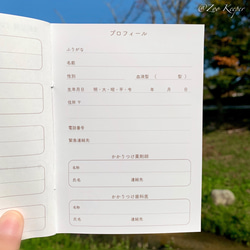 @Zoo Keeper
プロフィール
ふりがな
名前
性別 血液型 ( 型)
生年月日 明・大・昭・平・令 年 月 日
住所 〒
電話番号
緊急連絡先
かかりつけ薬剤師
名称
氏名 連絡先
かかりつけ歯科医
名称
氏名 連絡先